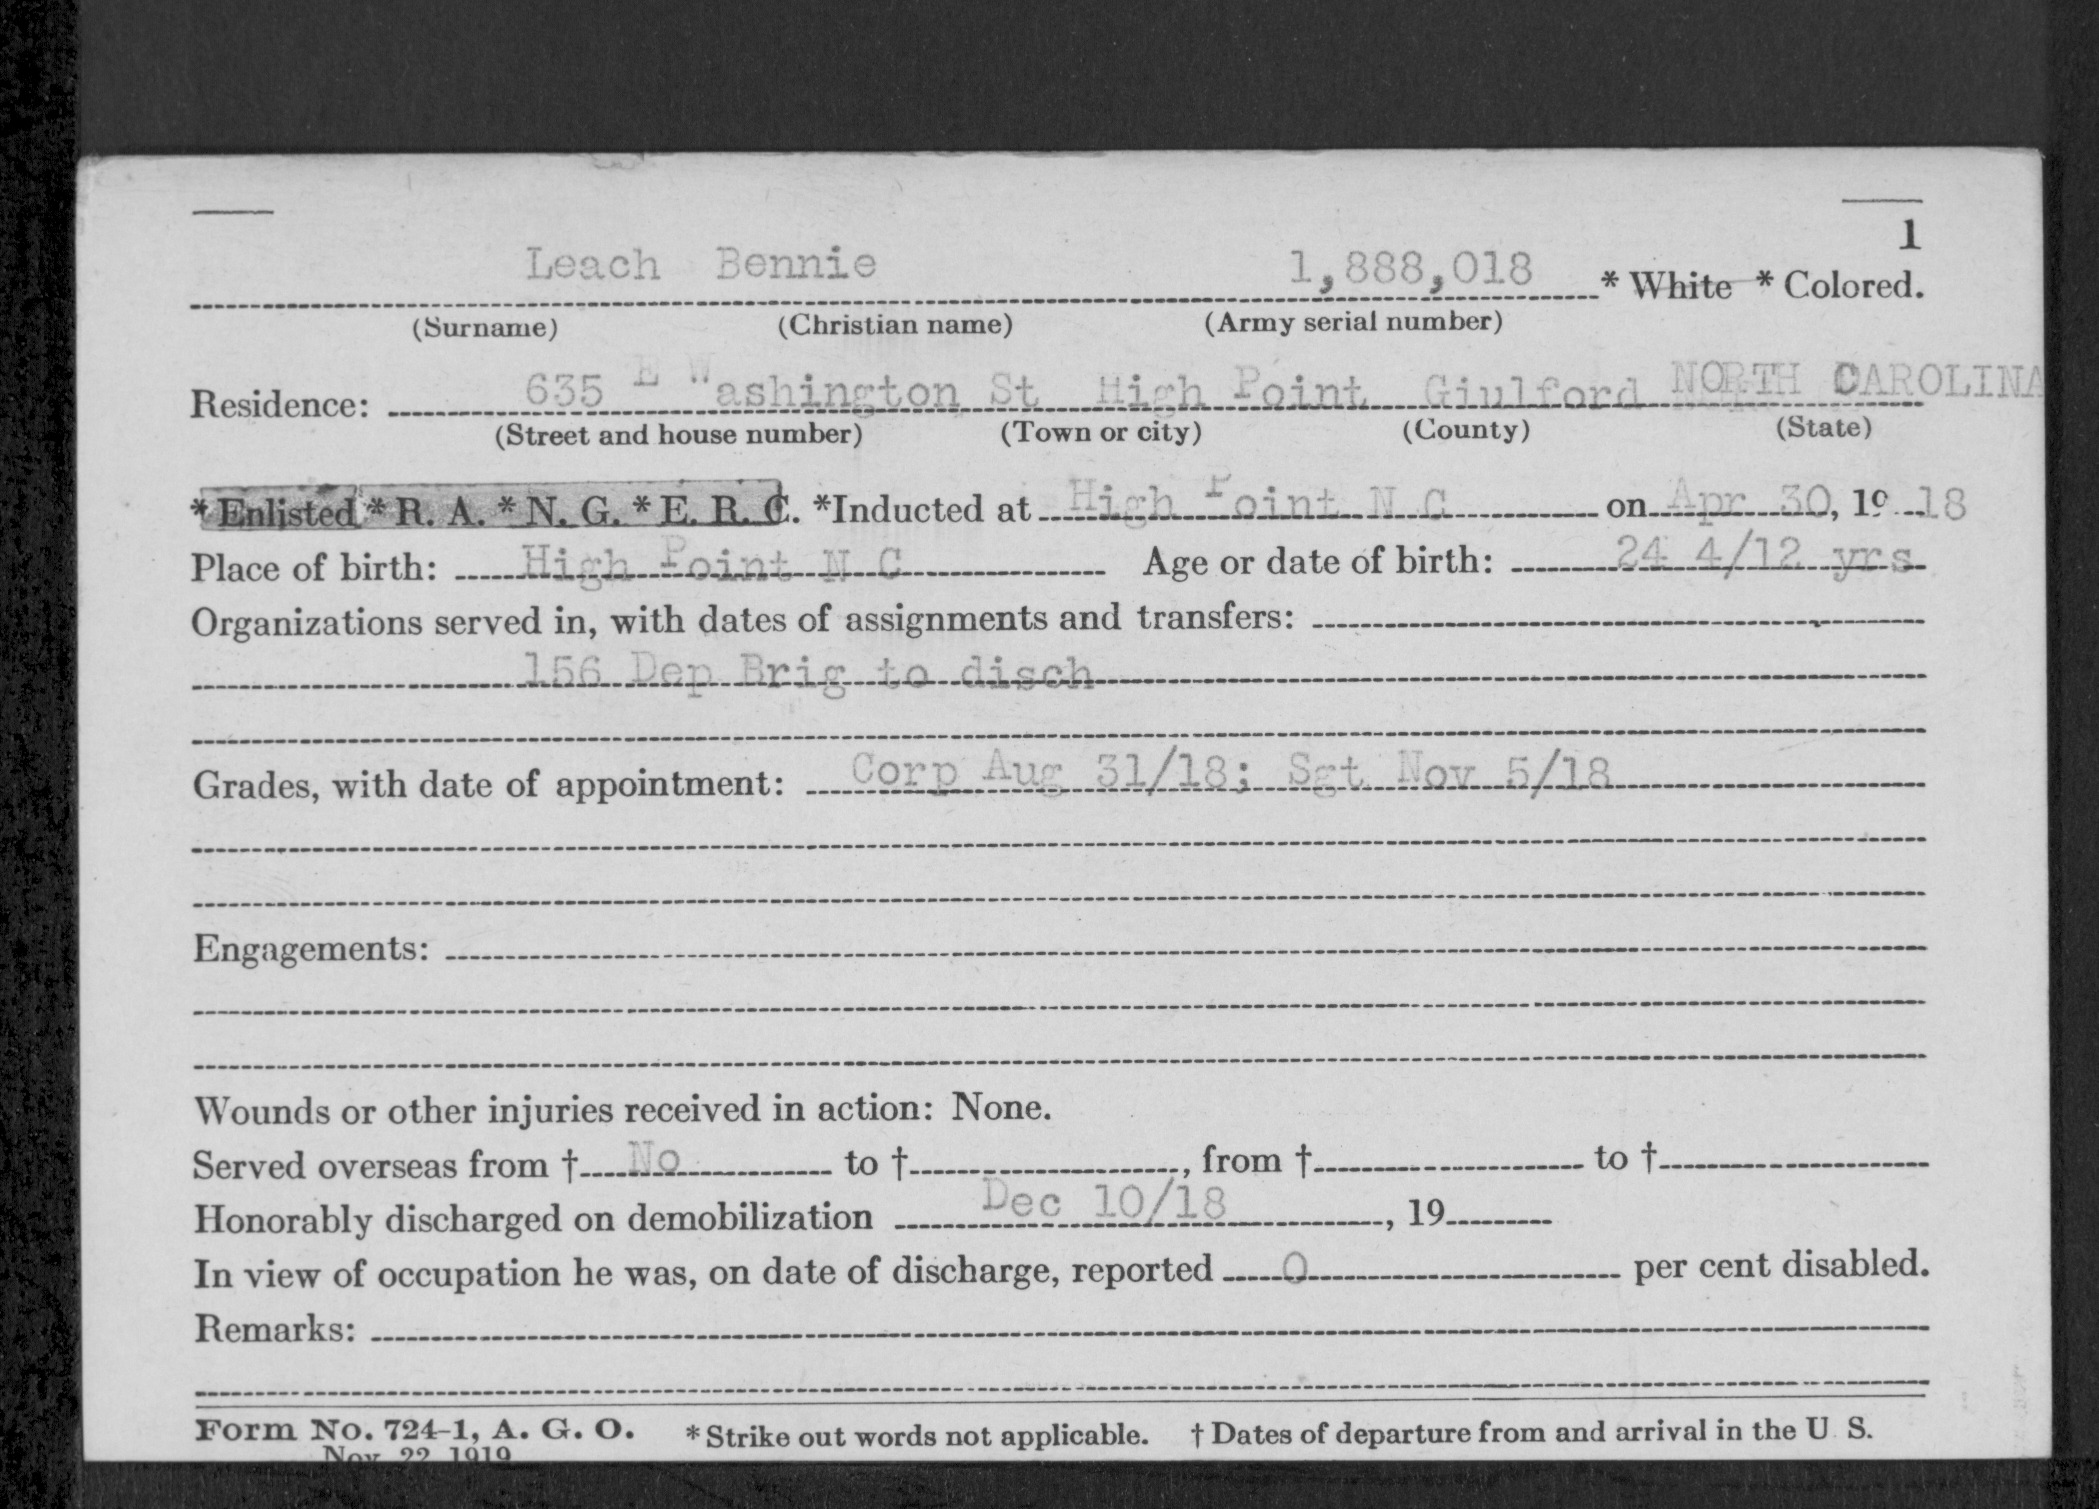 1
Leach Bennie 1,888,018 * White * Colored.
(Surname) (Christian name) (Army serial number)
Residence: 635 E Washington St High Point Giulford NORTH CAROLINA
(Street and house number) (Town or city) (County) (State)
* Enlisted * R. A. * N. G. * E. R. C. *Inducted at High Point N C on Apr 30, 19 18
Place of birth: High Point N C Age or date of birth: 24 4/12 yrs
Organizations served in, with dates of assignments and transfers:
156 Dep Brig to disch
Grades, with date of appointment: Corp Aug 31/18; Sgt Nov 5/18
Engagements:
Wounds or other injuries received in action: None.
Served overseas from † No to †, from † to †
Honorably discharged on demobilization Dec 10/18, 19
In view of occupation he was, on date of discharge, reported 0 per cent disabled.
Remarks:
Form No. 724-1, A. G. O. * Strike out words not applicable. † Dates of departure from and arrival in the U. S.
Nov. 22, 1919